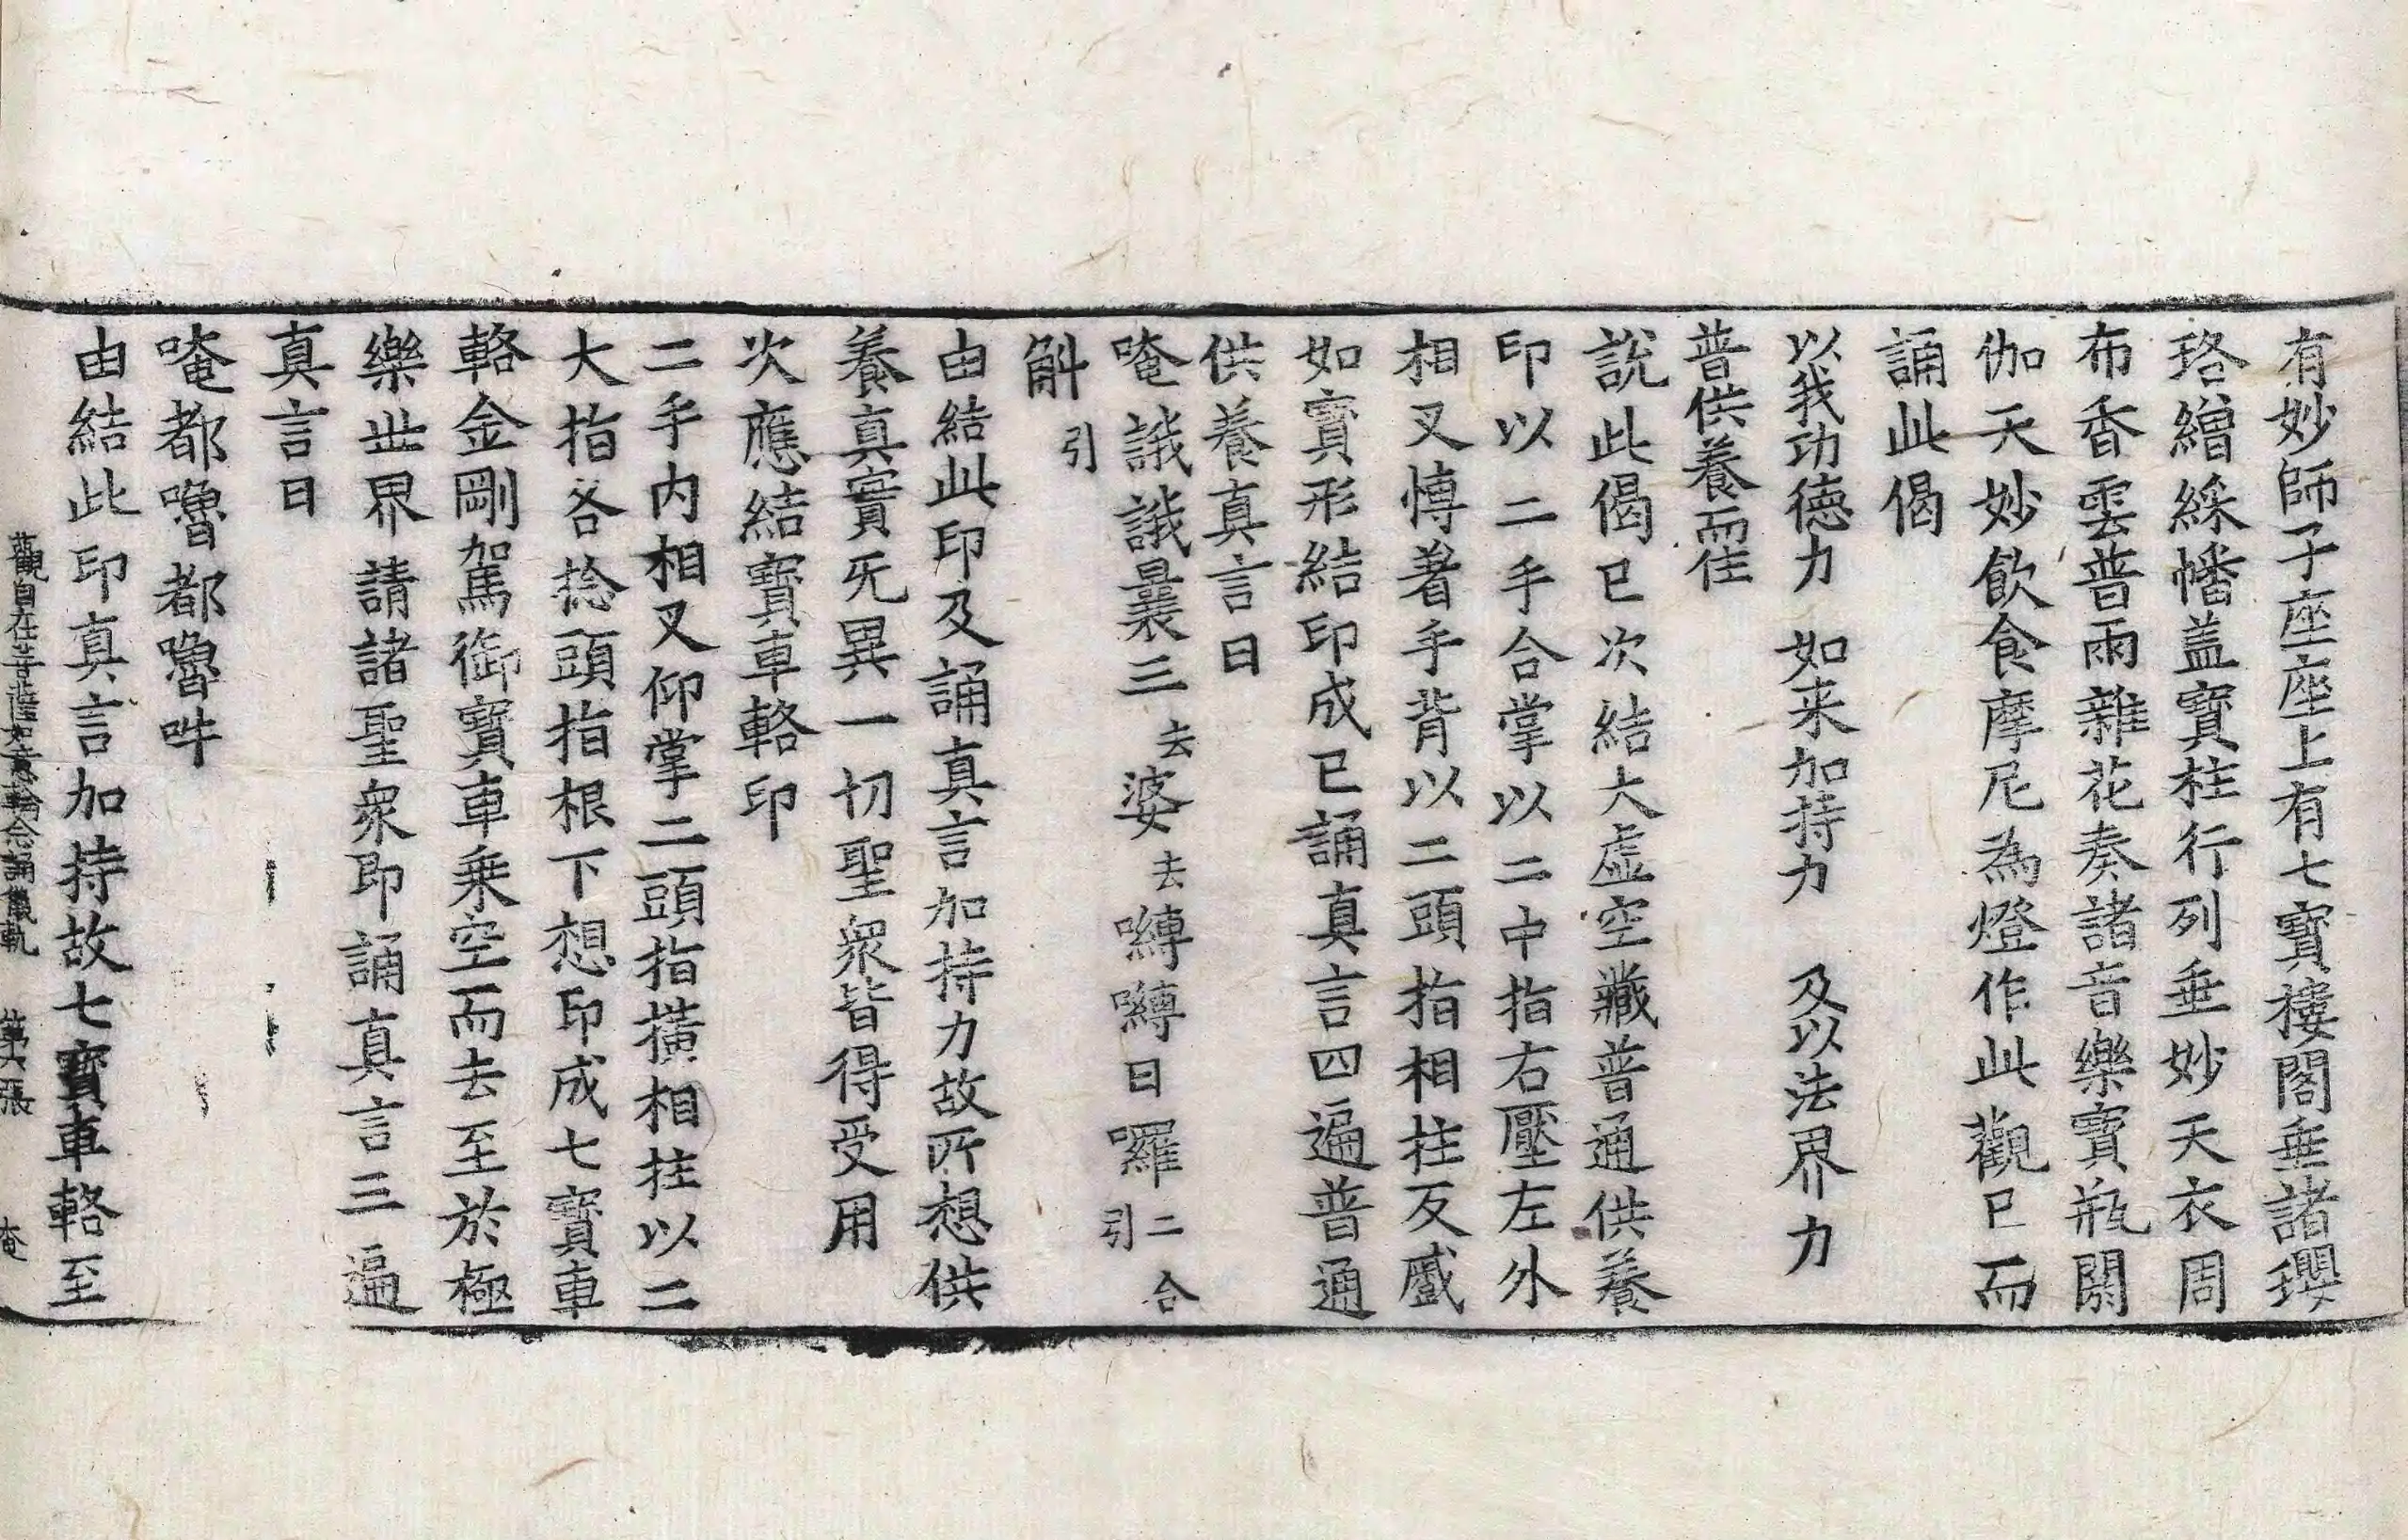 有妙師子座座上有七寶樓閣垂諸瓔
珞繒綵幡盖寶柱行列垂妙天衣周
布香雲普雨雜花奏諸音樂寶瓶閼
伽天妙飲食摩尼為燈作此觀已而
誦此偈
以我功德力　如来加持力　及以法界力
普供養而住
說此偈已次結大虛空藏普通供養
印以二手合掌以二中指右壓左外
相叉愽著手背以二頭指相柱反蹙
如寶形結印成已誦真言四遍普通
供養真言曰
唵誐誐曩三去婆去嚩嚩日囉二合引
斛引
由結此印及誦真言加持力故所想供
養真實旡異一切聖衆皆得受用
次應結寶車輅印
二手内相叉仰掌二頭指橫相拄以二
大指各捻頭指根下想印成七寶車
輅金剛駕御寶車乗空而去至於極
樂世界請諸聖衆即誦真言三遍
真言曰
唵都嚕都嚕吽
由結此印真言加持故七寶車輅至
觀自在菩薩如意輪念誦儀軌　第六張　奄